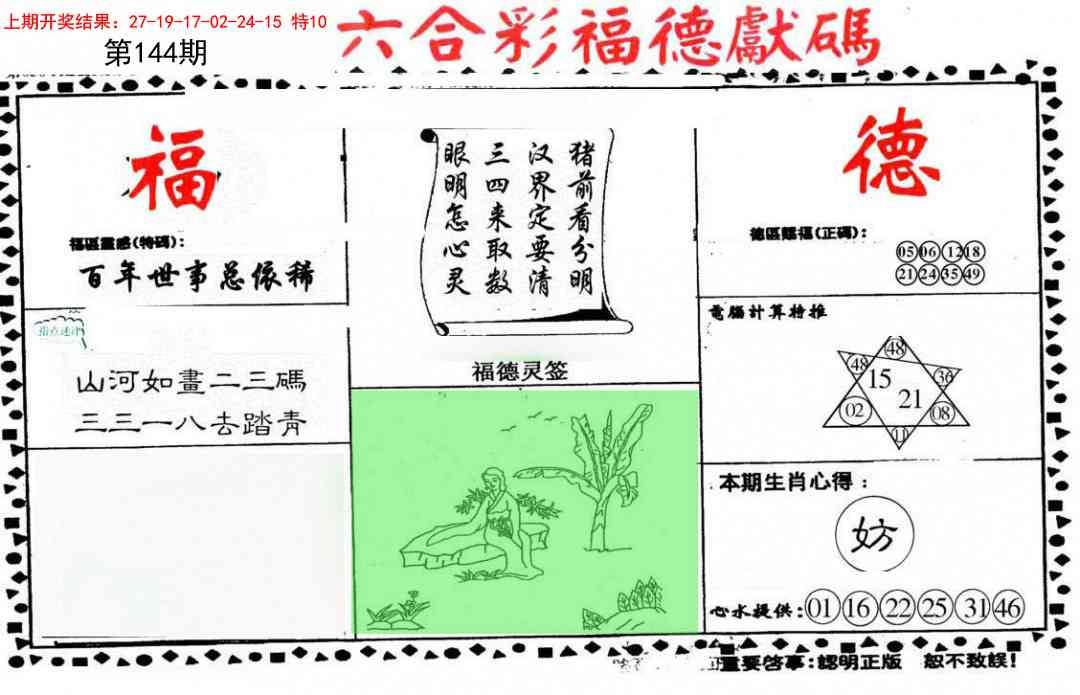 上期开奖结果：27-19-17-02-24-15 特10
第144期
六合彩福德獻碼
福
福區靈感(特碼)：
百年世事总依稀
山河如畫二三碼
三三一八去踏青
猪前看分明
汉界定要清
三四来取数
眼明怎心灵
福德灵签
德
德區賜福(正碼)：
05 06 12 18
21 24 35 49
電腦計算特推
48
48 15 36
21
02 08
11
本期生肖心得：
妨
心水提供：01 16 22 25 31 46
重要启事：認明正版 恕不致誤！